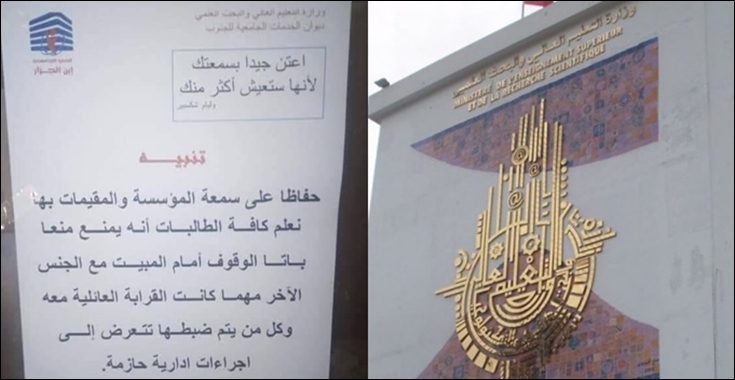 وزارة التعليم العالي والبحث العلمي
ديوان الخدمات الجامعية للجنوب
ابن الجزار
اعتن جيدا بسمعتك
لأنها ستعيش أكثر منك
وليام شكسبير
تنبيه
حفاظا على سمعة المؤسسة والمقيمات بها
نعلم كافة الطالبات أنه يمنع منعا
باتا الوقوف أمام المبيت مع الجنس
الآخر مهما كانت القرابة العائلية معه
وكل من يتم ضبطها تتعرض إلى
اجراءات ادارية حازمة.
وزارة التعليم العالي والبحث العلمي
MINISTERE DE L'ENSEIGNEMENT SUPERIEUR
ET DE LA RECHERCHE SCIENTIFIQUE